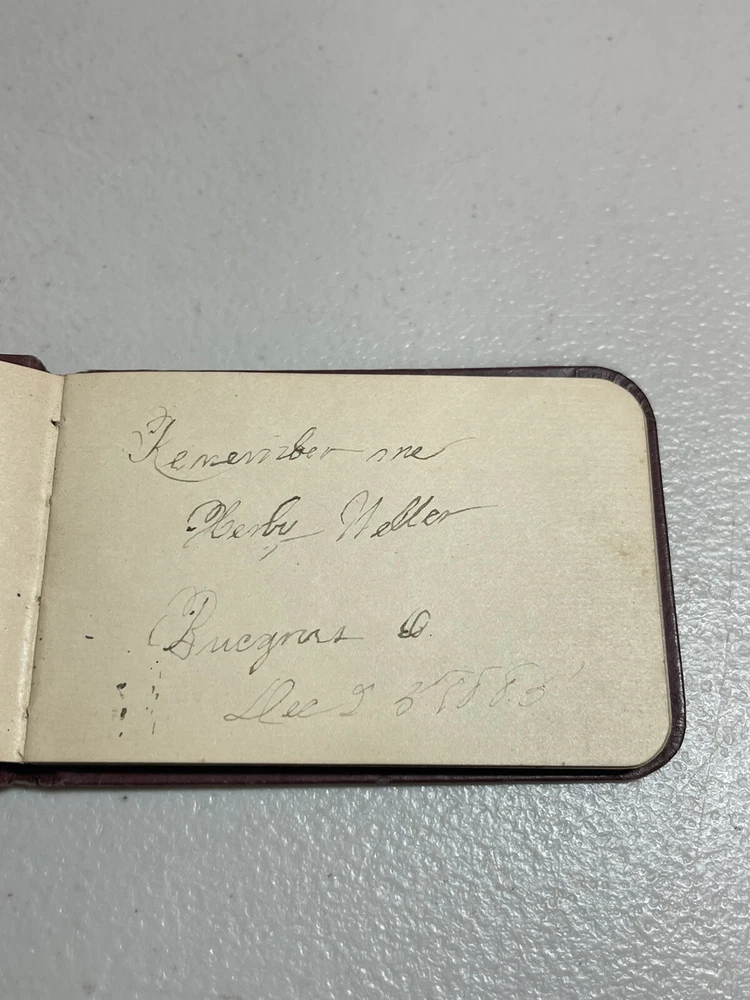 Remember me
Herby Weller
Bucyrus O.
Dec 23 1883